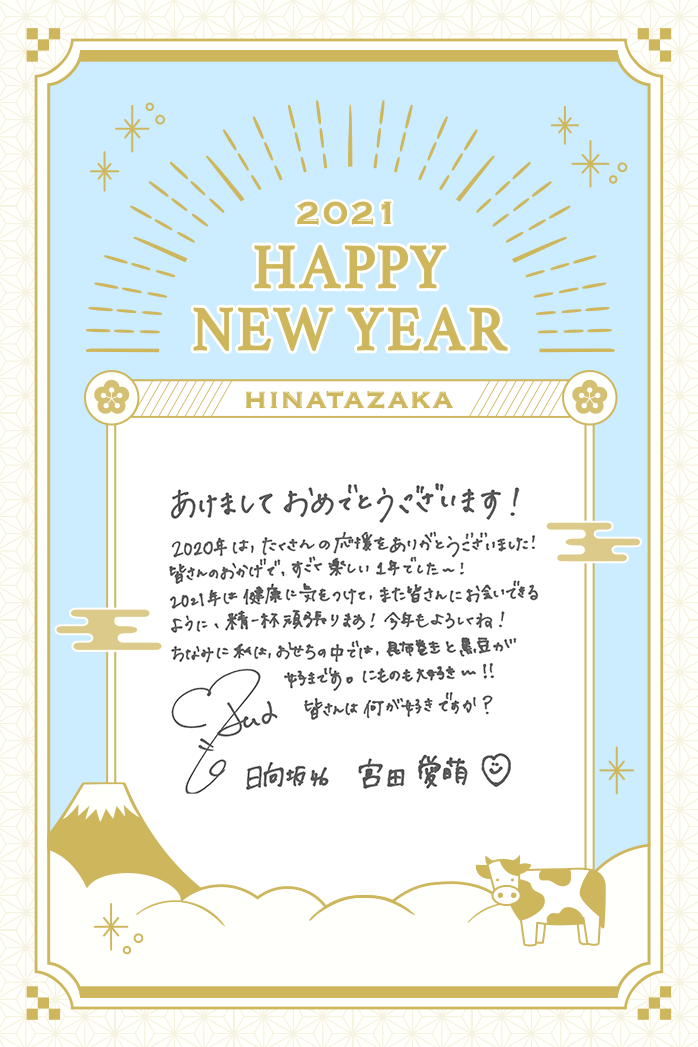 2021
HAPPY
NEW YEAR
HINATAZAKA
あけましておめでとうございます!
2020年は、たくさんの応援をありがとうございました!
皆さんのおかげで、すごく楽しい1年でした〜!
2021年は健康に気をつけて、また皆さんにお会いできる
ように、精一杯頑張ります!今年もよろしくね!
ちなみに私は、おせちの中では、昆布巻きと黒豆が
好きです。にものも大好き〜!!
皆さんは何が好きですか?
日向坂46 宮田愛萌